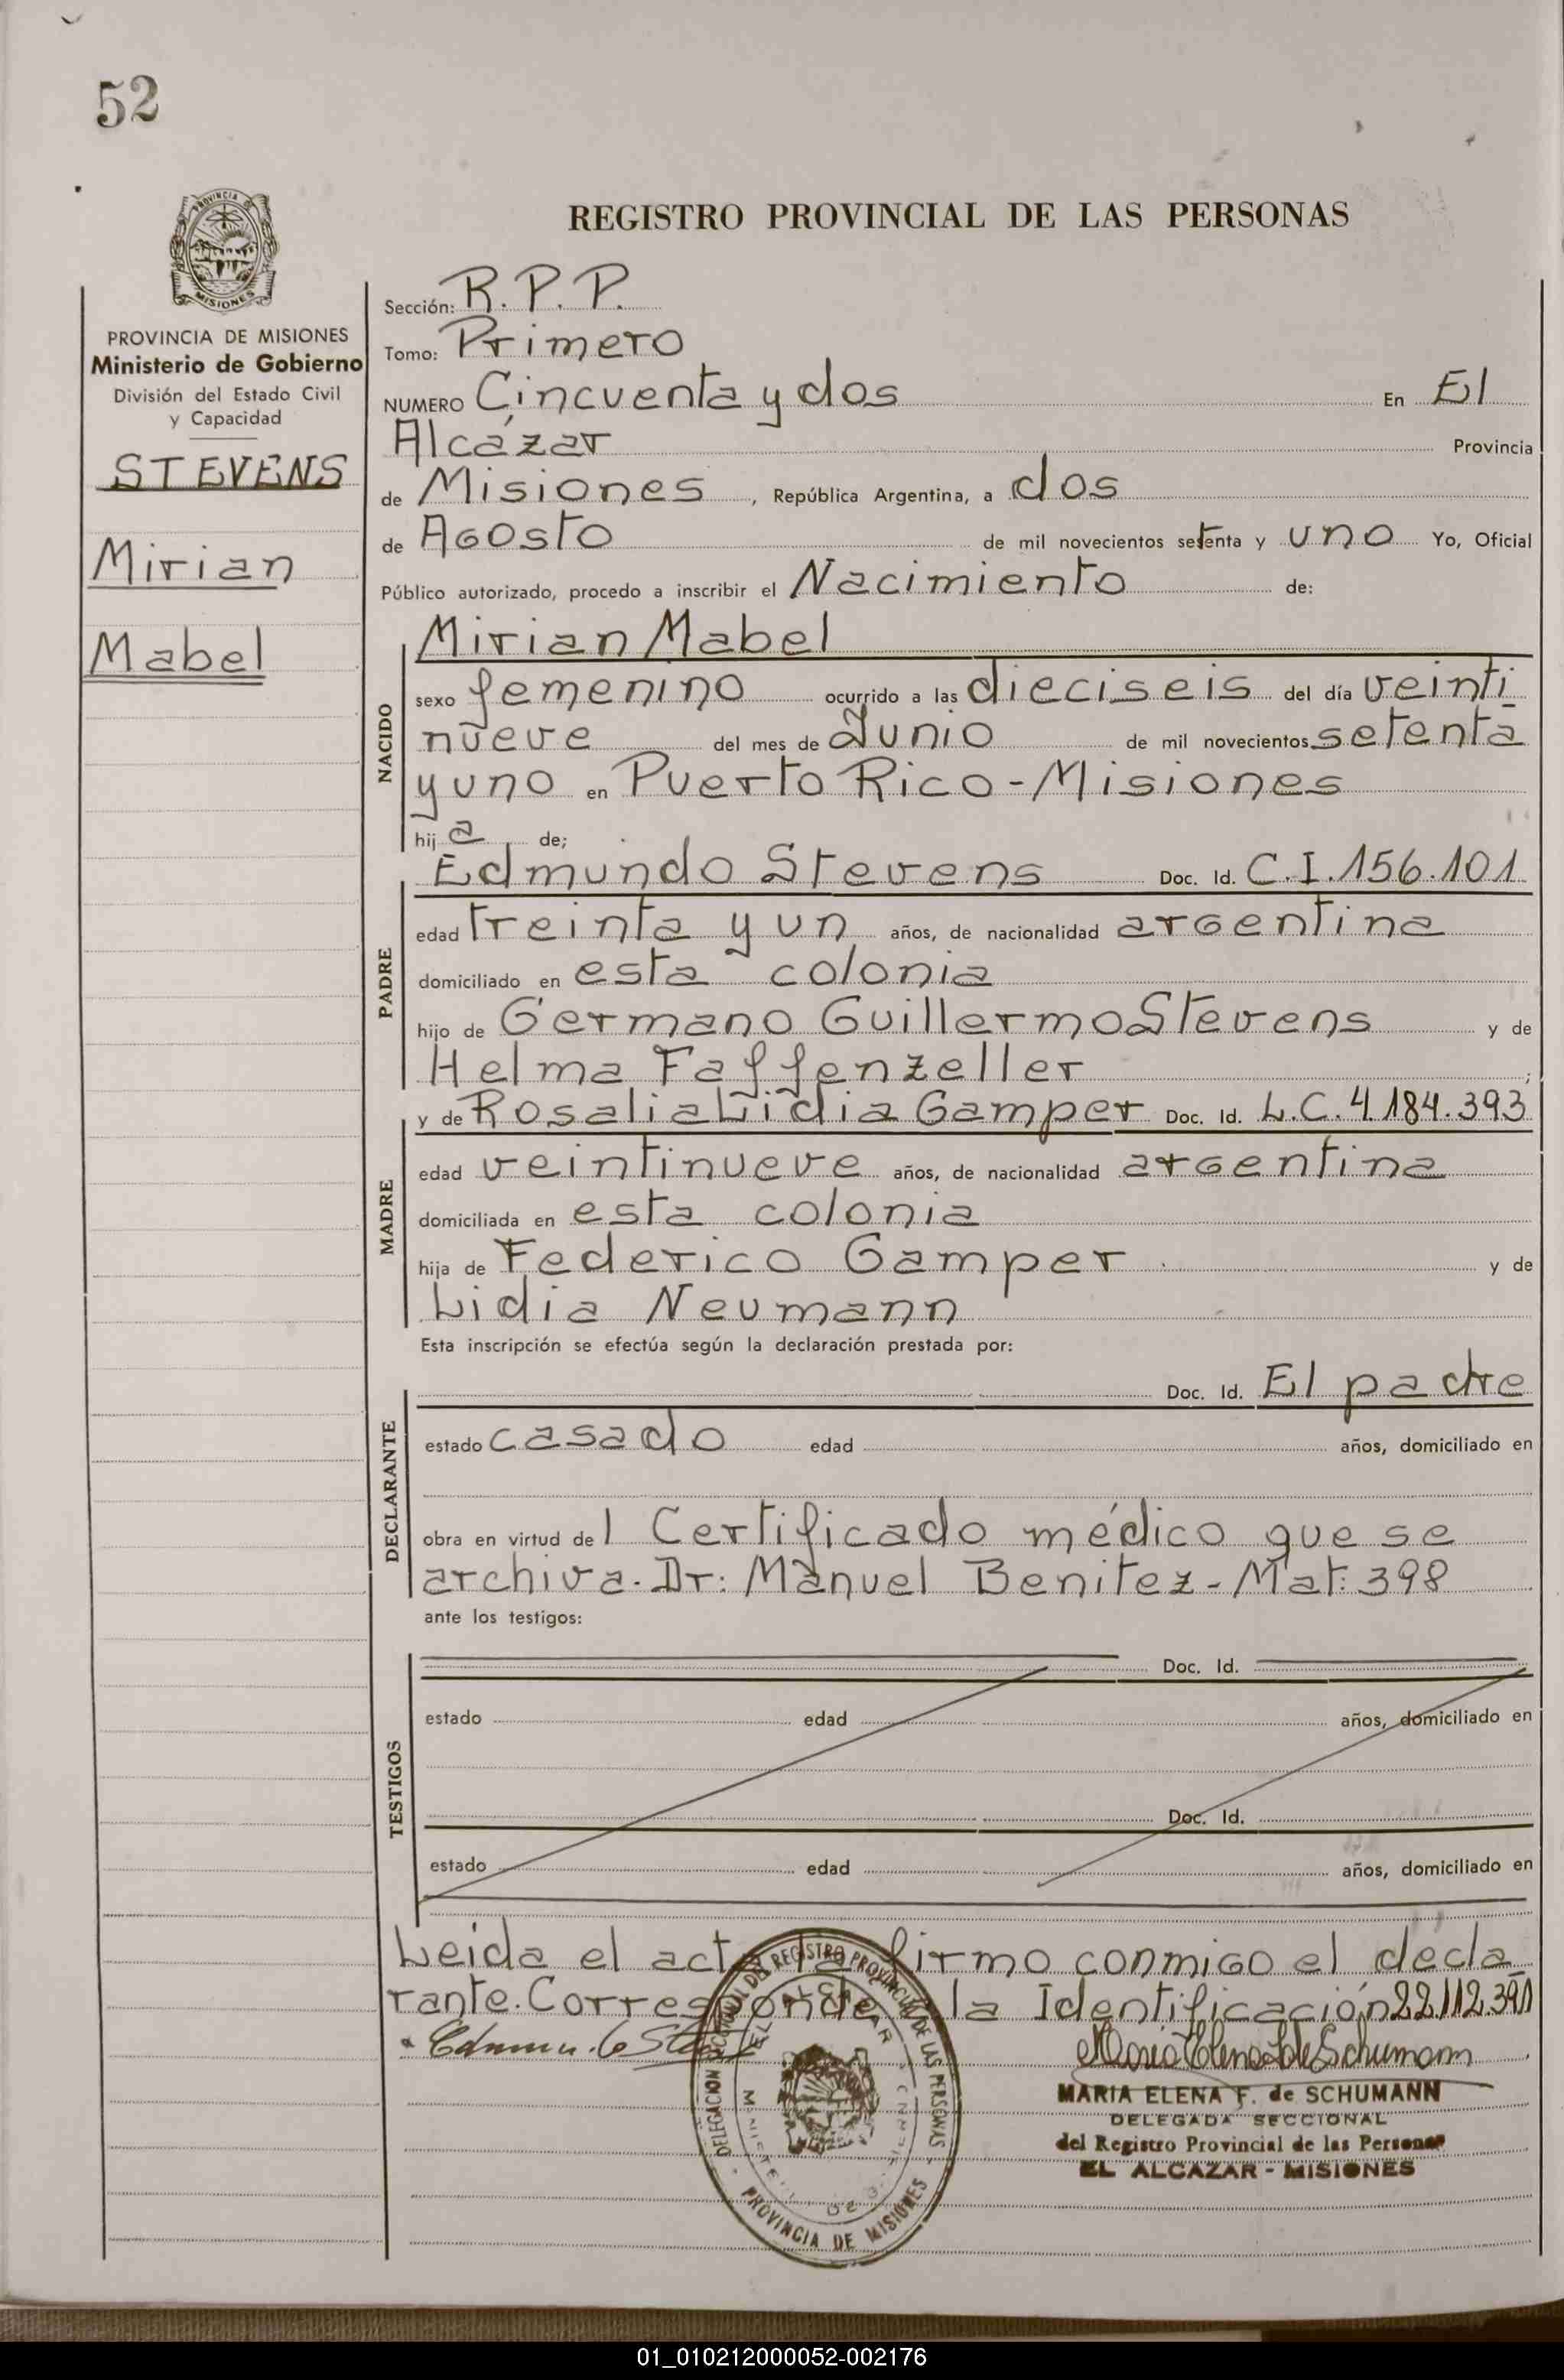 52
REGISTRO PROVINCIAL DE LAS PERSONAS
PROVINCIA
MISIONES
PROVINCIA DE MISIONES
Ministerio de Gobierno
División del Estado Civil
y Capacidad
STEVENS
Mirian
Mabel
Sección: R.P.P.
Tomo: Primero
NUMERO Cincuenta y dos En El
Alcázar Provincia
de Misiones, República Argentina, a dos
de Agosto de mil novecientos setenta y uno Yo, Oficial
Público autorizado, procedo a inscribir el Nacimiento de:
NACIDO
Mirian Mabel
sexo femenino ocurrido a las dieciseis del día veinti
nueve del mes de Junio de mil novecientos setenta
y uno en Puerto Rico - Misiones
hija de;
PADRE
Edmundo Stevens Doc. Id. C.I. 156.101
edad treinta y un años, de nacionalidad argentina
domiciliado en esta colonia
hijo de Germano Guillermo Stevens y de
Helma Faffenzeller;
MADRE
y de Rosalia Lidia Gamper Doc. Id. L.C. 4.184.393
edad veintinueve años, de nacionalidad argentina
domiciliada en esta colonia
hija de Federico Gamper y de
Lidia Neumann
Esta inscripción se efectúa según la declaración prestada por:
DECLARANTE
Doc. Id. El padre
estado casado edad años, domiciliado en
obra en virtud del Certificado médico que se
archiva. Dr: Manuel Benitez - Mat: 398
ante los testigos:
TESTIGOS
Doc. Id.
estado edad años, domiciliado en
Doc. Id.
estado edad años, domiciliado en
Leida el acta la firmo conmigo el decla
rante. Corresponde la Identificación 22.112.391
MARIA ELENA F. de SCHUMANN
DELEGADA SECCIONAL
del Registro Provincial de las Personas
EL ALCAZAR - MISIONES
DELEGACION SECCIONAL DEL REGISTRO PROVINCIAL DE LAS PERSONAS
EL ALCAZAR
PROVINCIA DE MISIONES
01_010212000052-002176